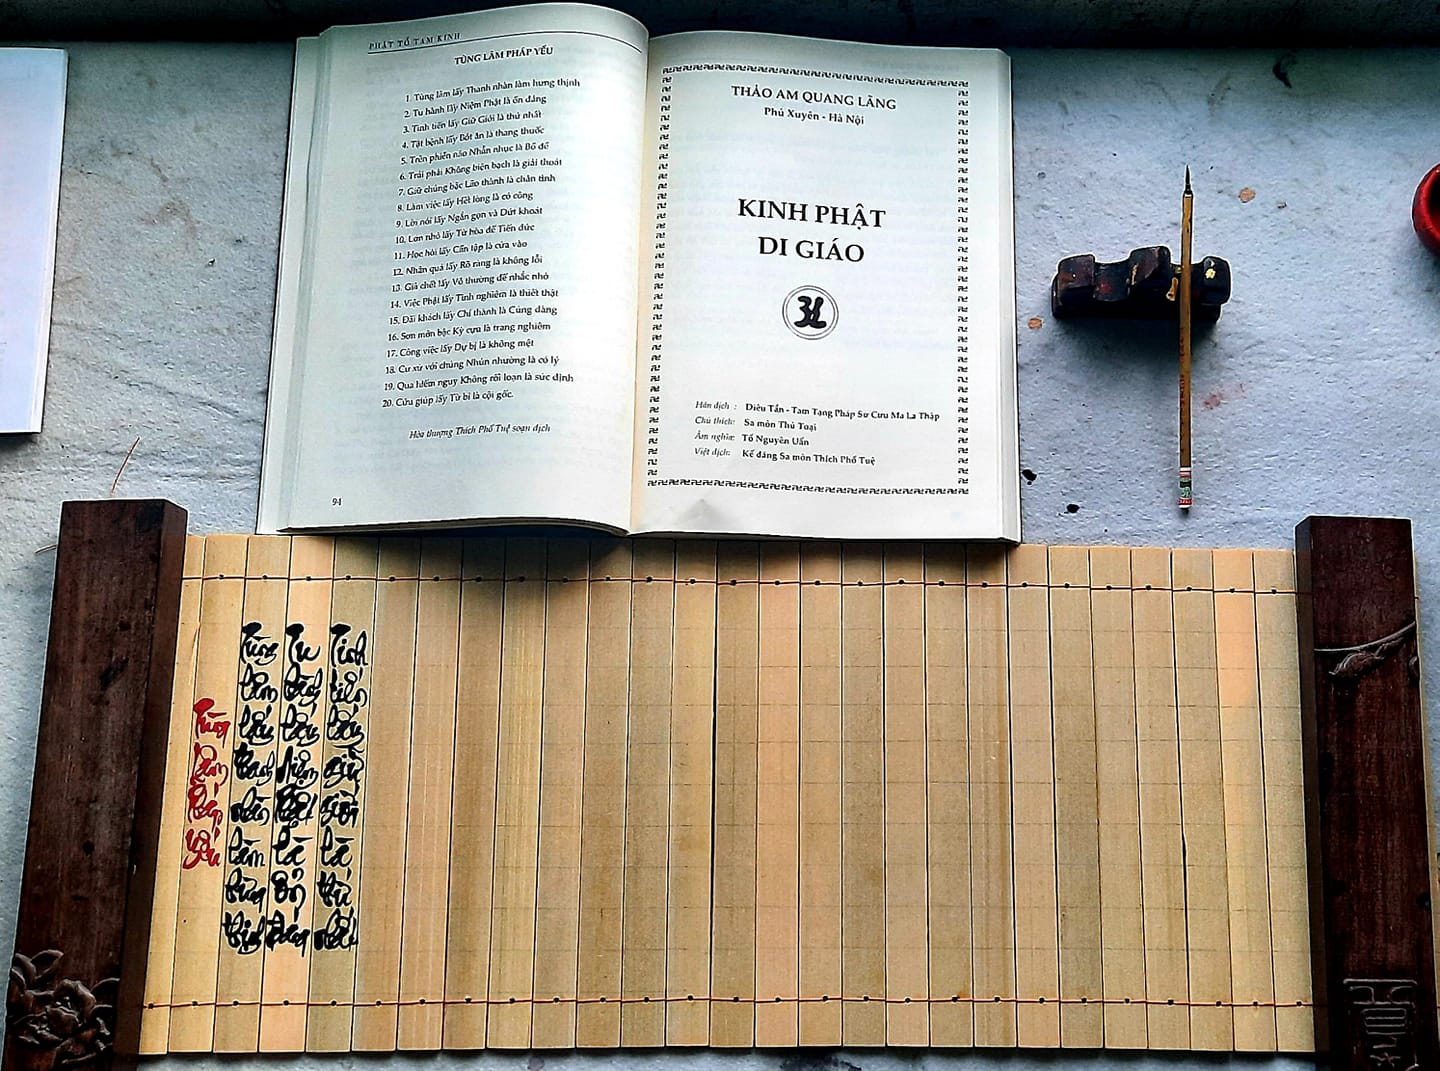 PHẬT TỔ TAM KINH
TÙNG LÂM PHÁP YẾU
1. Tùng lâm lấy Thanh nhàn làm hưng thịnh
2. Tu hành lấy Niệm Phật là ổn đáng
3. Tinh tiến lấy Giữ Giới là thứ nhất
4. Tật bệnh lấy Bớt ăn là thang thuốc
5. Trên phiền não Nhẫn nhục là Bồ đề
6. Trái phải Không biện bạch là giải thoát
7. Giữ chúng bậc Lão thành là chân tình
8. Làm việc lấy Hết lòng là có công
9. Lời nói lấy Ngắn gọn và Dứt khoát
10. Lớn nhỏ lấy Từ hòa để Tiến đức
11. Học hỏi lấy Cần tập là cửa vào
12. Nhân quả lấy Rõ ràng là không lỗi
13. Già chết lấy Vô thường để nhắc nhở
14. Việc Phật lấy Tinh nghiêm là thiết thật
15. Đãi khách lấy Chí thành là Cúng dàng
16. Sơn môn bậc Kỳ cựu là trang nghiêm
17. Công việc lấy Dự bị là không mệt
18. Cư xử với chúng Nhún nhường là có lý
19. Qua hiểm nguy Không rối loạn là sức định
20. Cứu giúp lấy Từ bi là cội gốc.
Hòa thượng Thích Phổ Tuệ soạn dịch
94
THẢO AM QUANG LÃNG
Phú Xuyên - Hà Nội
KINH PHẬT
DI GIÁO
Hán dịch : Diêu Tần - Tam Tạng Pháp Sư Cưu Ma La Thập
Chú thích: Sa môn Thủ Toại
Âm nghĩa: Tổ Nguyên Uẩn
Việt dịch: Kế đăng Sa môn Thích Phổ Tuệ
Tùng lâm pháp yếu
Tùng lâm lấy thanh nhàn làm hưng thịnh
Tu hành lấy niệm Phật là ổn đáng
Tinh tiến lấy giữ giới là thứ nhất